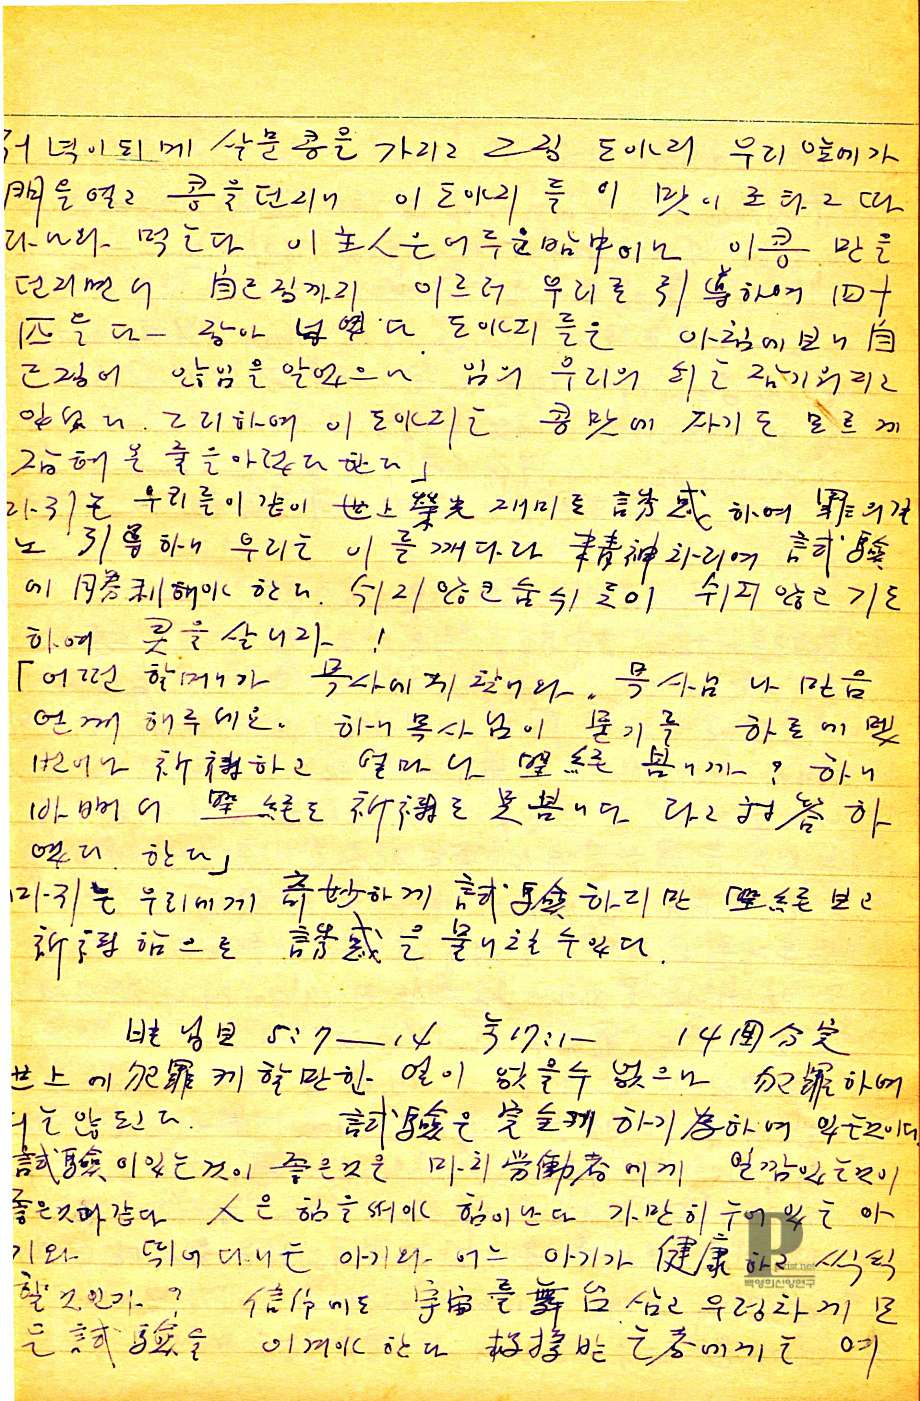 저녁이되메 삶문콩을 가리고 그림 도야지 우리 앞에가
門을열고 콩을던지니 이 도야지들이 맛이조타고 따
라나와 먹는다 이主人은어두운밤中에나 이콩만을
던지면서 自己집까지 이르러 우리를 引導하여 四十
匹을 다 잡아 도야지들은 아침에보니 自
己집이 않임을알았으나 임의 우리의 쇠는 잠기워지고
있었다. 그리하여 이 도야지는 콩맛에 자기도 모르게
잡혜온 줄을아렀다한다」
마귀는 우리를이같이 世上榮光 재미로 誘惑하여 罪의길
노 引導하니 우리는 이를깨다라 精神차리여 試驗
에 勝利해야 한다. 쉬지않코숨쉬듯이 쉬지않고기도
하여 못을 삽니가 !
「어떤 할머니가 목사에게 찾내와. 목사님 나 믿음
얻게 해주세요. 하니목사님이 묻기를 하로에 몟
번이나 祈禱하고 얼마나 聖經봅니까? 하니
바뻐서 聖經도 祈禱도 못봅니다 라고 對答하
였다 한다」
마귀는 우리에게 奇妙하게 試驗하지만 聖經보고
祈禱함으로 誘惑을 물니칠수있다.
벧넘보 5:7—14 눅17:1— 14周合定
世上에 犯罪케할만한 일이 없을수 없으나 犯罪하여
서는않된다. 試驗은 完全케 하기爲하여 있는것이다
試驗이있는것이 좋은것은 마치 勞働者에게 일깜있는것이
좋은것과같다 人은 힘을써야 힘이난다 가만히 누어있는 아
기와 뛰여다니는 아기와 어느 아기가 健康하고 씩씩
할것인가? 信仰에도 宇宙를 舞台삼고 우렁차게 모
든試驗을 이겨야한다 救援받는者에게는 여
P
백영희신앙연구